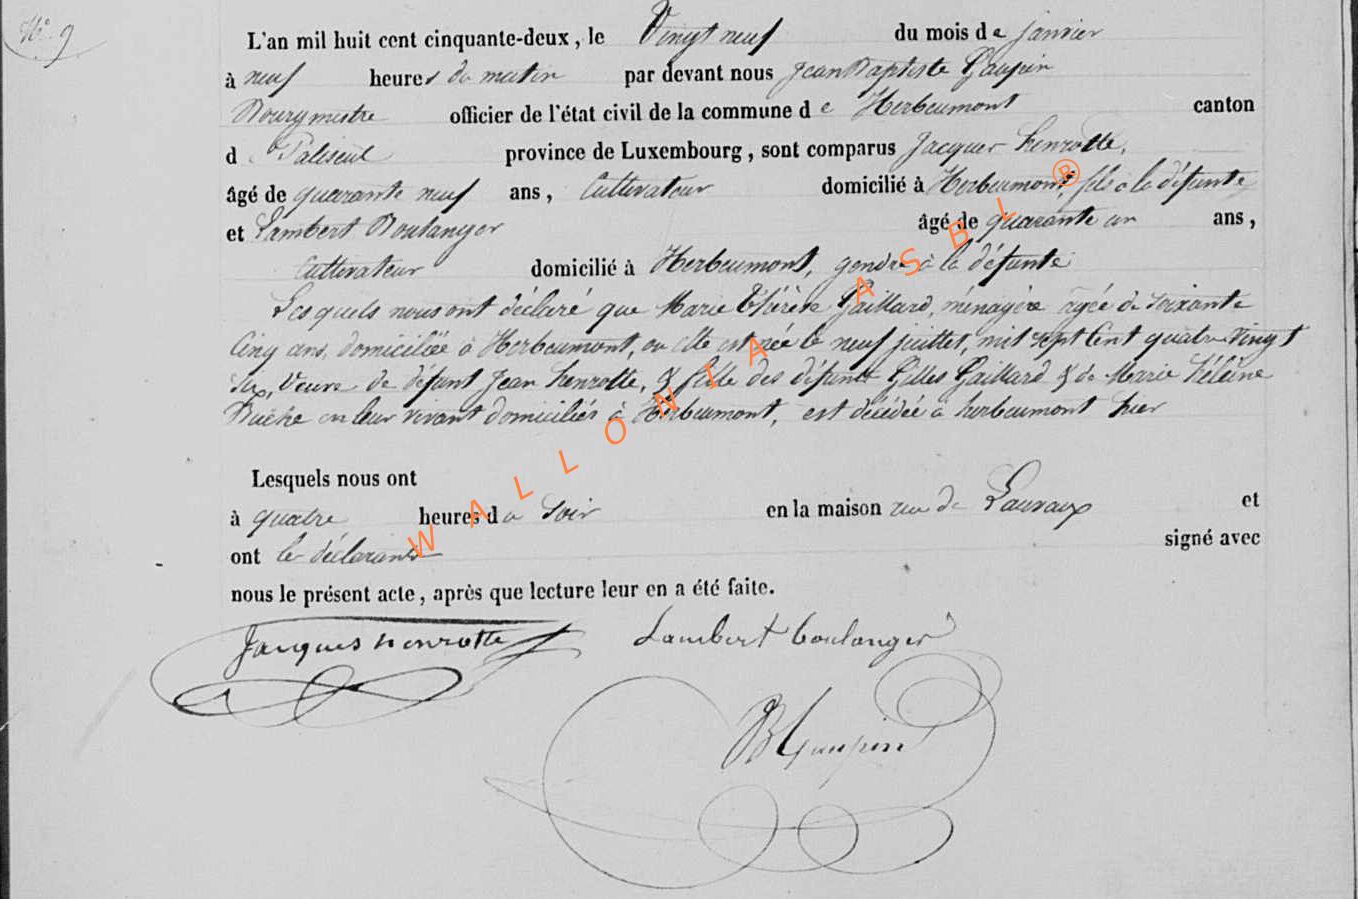 N° 9
L'an mil huit cent cinquante-deux, le Vingt neuf du mois de janvier
à neuf heures du matin par devant nous Jean Baptiste Gaupin
Bourgmestre officier de l'état civil de la commune de Herbeumont canton
de Paliseul province de Luxembourg, sont comparus Jacques henrotte,
âgé de quarante neuf ans, Cultivateur domicilié à Herbeumont, fils à la défunte
et Lambert Boulanger âgé de quarante un ans,
Cultivateur domicilié à Herbeumont, gendre à la défunte
Lesquels nous ont déclaré que Marie Thérèse Gaillard, ménagère âgée de soixante
Cinq ans, domiciliée à Herbeumont, ou elle est née le neuf juillet, mil sept Cent quatre Vingt
Six, Veuve de défunt Jean henrotte, & fille des défunts Gilles Gaillard & de Marie Hélèine
en leur vivant domiciliés à Herbeumont, est décédée à herbeumont hier
Lesquels nous ont
à quatre heures du Soir en la maison rue de et
ont les déclarants signé avec
nous le présent acte, après que lecture leur en a été faite.
Jacques henrotte Lambert boulanger
JBGaupin
WALLONIA ASBL ®